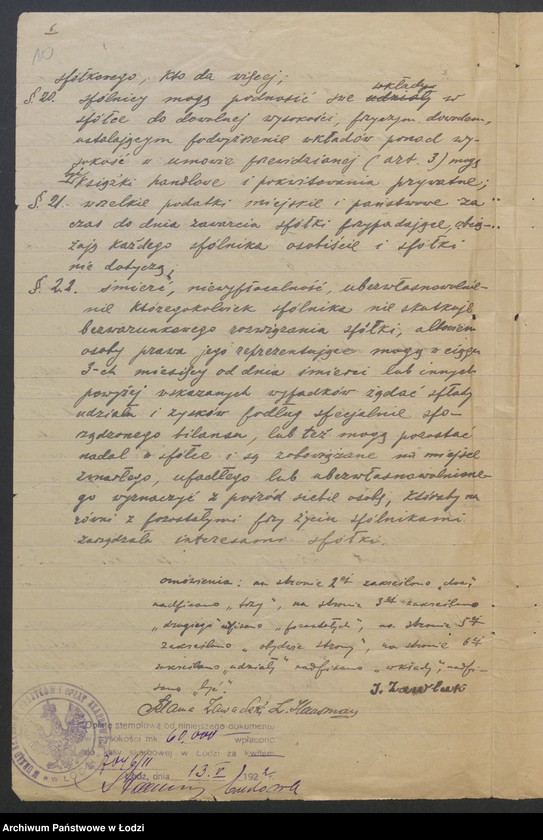 6
10
spółkowego, kto da więcej;
§. 20. spólnicy mogą podnosić swe wkłady udziały w
spółce do dowolnej wysokości, przyczym dowodem,
ustalającym podwyższenie wkładów ponad wy-
sokość w umowie przewidzianej (art. 3) mogą
być książki handlowe i pokwitowania prywatne;
§. 21. wszelkie podatki miejskie i państwowe za
czas do dnia zawarcia spółki przypadające, obcią-
żają każdego spólnika osobiście i spółki
nie dotyczą;
§. 22. śmierć, niewypłacalność, ubezwłasnowolnie-
nie któregokolwiek spólnika nie skutkuje
bezwarunkowego rozwiązania spółki, albowiem
osoby prawa jego reprezentujące mogą w ciągu
3-ch miesięcy od dnia śmierci lub innych
powyżej wskazanych wypadków żądać spłaty
udziału i zysków podług specjalnie spo-
rządzonego bilansu, lub też mogą pozostać
nadal w spółce i są zobowiązane na miejsce
zmarłego, upadłego lub ubezwłasnowolnione-
go wyznaczyć z pośród siebie osobę, któraby na
równi z pozostałymi przy życiu spólnikami
zarządzała interesami spółki.
omówienia: na stronie 2ej zakreślono „dwa",
nadpisano „trzy", na stronie 3ej zakreślono
„drugiego" wpisano „pozostałych", na stronie 5ej
zakreślono „obydwie strony", na stronie 6ej
zakreślono „udziały" nadpisano „wkłady", nadpi-
sano „być".
Opłatę stemplową od niniejszego dokumentu
w wysokości mk. 60,000 wpłacono
do kasy skarbowej w Łodzi za kwitem
Łódź, dnia 13. V 192
Archiwum Państwowe w Łodzi